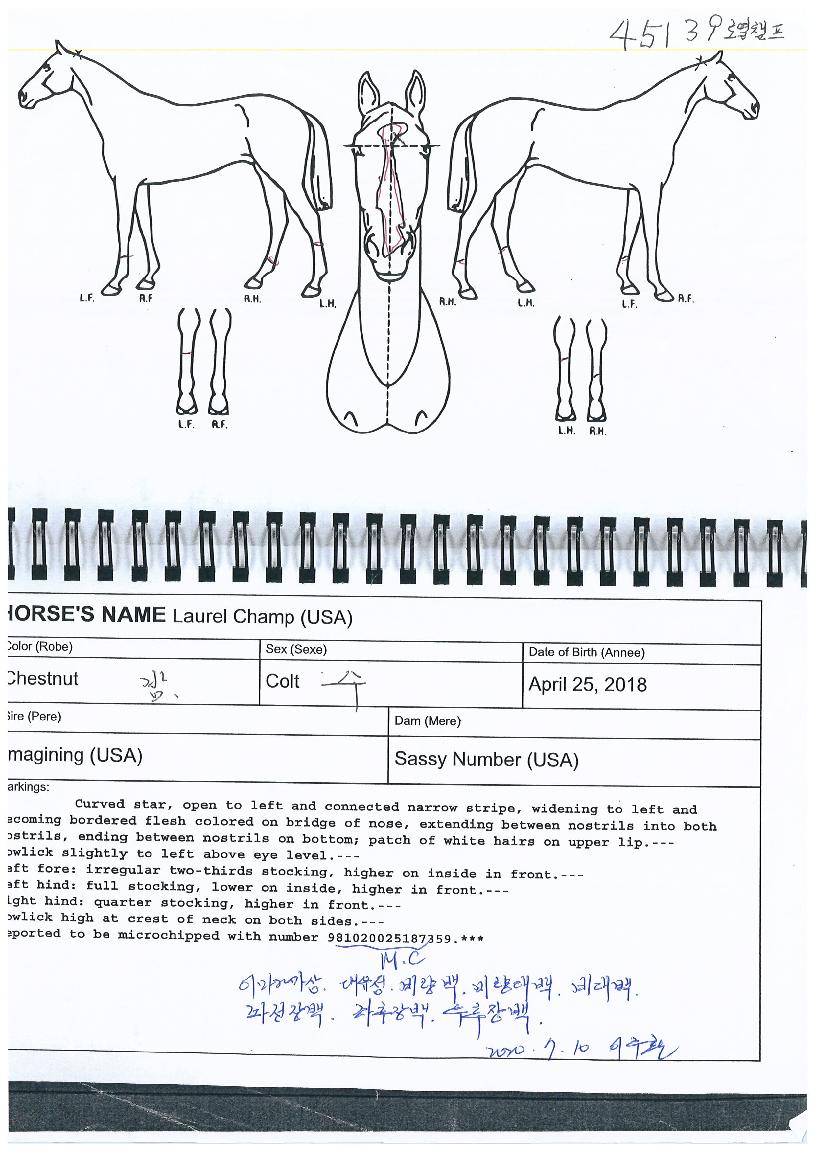 45139 로열챔프
L.F. R.F R.H. L.H. R.H. L.H. L.F. R.F.
L.F. R.F. L.H. R.H.
HORSE'S NAME Laurel Champ (USA)
Color (Robe) Sex (Sexe) Date of Birth (Annee)
Chestnut Colt 수 April 25, 2018
Sire (Pere) Dam (Mere)
magining (USA) Sassy Number (USA)
arkings:
Curved star, open to left and connected narrow stripe, widening to left and
ecoming bordered flesh colored on bridge of nose, extending between nostrils into both
ostrils, ending between nostrils on bottom; patch of white hairs on upper lip.---
owlick slightly to left above eye level.---
eft fore: irregular two-thirds stocking, higher on inside in front.---
eft hind: full stocking, lower on inside, higher in front.---
ight hind: quarter stocking, higher in front.---
owlick high at crest of neck on both sides.---
eported to be microchipped with number 981020025187359.***
M.C
비량백. 비대백.
좌전장백. 좌후장백. 우후장백.
2020.7.10